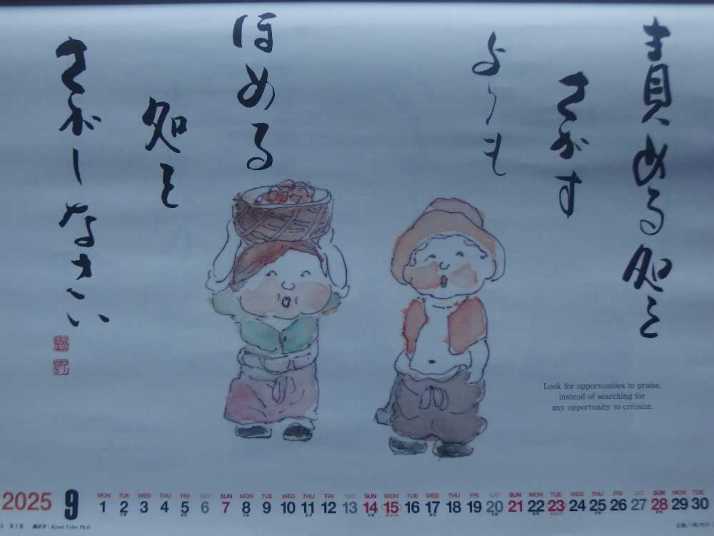 責める処を
さがす
よりも
ほめる
処を
さがしなさい
Look for opportunities to praise,
instead of searching for
any opportunity to criticize.
2025 9
MON TUE WED THU FRI SAT SUN MON TUE WED THU FRI SAT SUN MON TUE WED THU FRI SAT SUN MON TUE WED THU FRI SAT SUN MON TUE
1 2 3 4 5 6 7 8 9 10 11 12 13 14 15 16 17 18 19 20 21 22 23 24 25 26 27 28 29 30